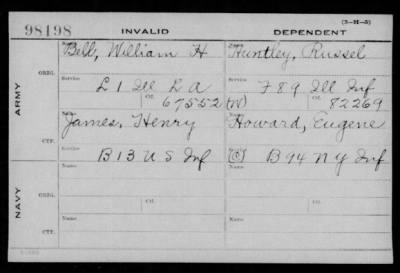 (3-H-5)
98198 INVALID DEPENDENT
Name Bell, William H Name Huntley, Russel
ARMY
ORIG. Service L 1 Ill L A Service F 89 Ill Inf
Ctf. 67552 (W) Ctf. 82269
James, Henry Howard, Eugene
CTF. Service B 13 U S Inf (C) Service B 94 N Y Inf
NAVY
ORIG. Name Ctf. Name Ctf.
CTF. Name Name